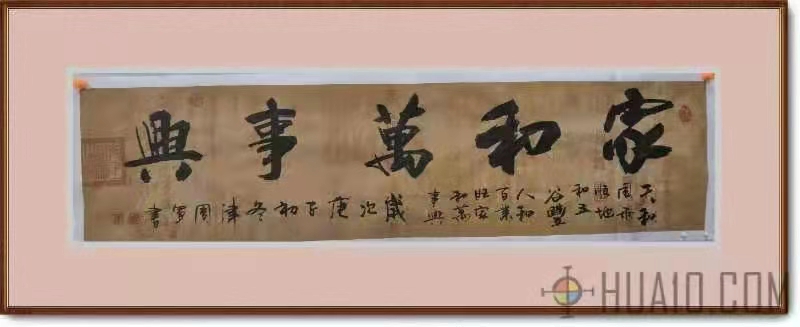 家和萬事興
天和
風雨
順地
和五
谷豐
人和
百業
旺家
和萬
事興
歲次庚子初冬津書
HUA10.COM